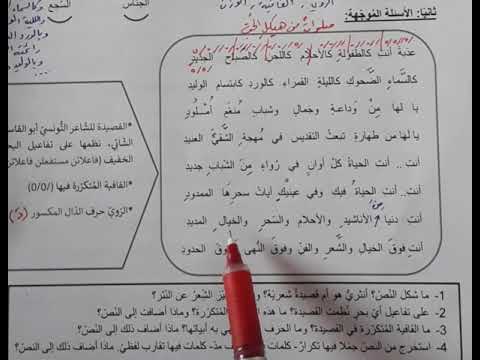 السجع
الجناس
ثانيًا: الأسئلة المُوجّهة:
صلوات في هيكل الحب
عذبة أنتِ كالطفولةِ كالأحلامِ كاللحنِ كالصباحِ الجديدِ
كالسَّماءِ الضَّحوكِ كالليلةِ القمراءِ كالوردِ كابتسام الوليدِ
يا لها مِنْ وَداعةٍ وجَمالٍ وشبابٍ مُنعّمٍ أُمْلُودِ
يا لها من طهارةٍ تبعثُ التقديسَ في مُهجةِ الشَّقيِّ العنيدِ
أنتِ.. أنتِ الحياةُ كلّ أوانٍ في رُواءٍ مِنَ الشّبابِ جديدِ
أنتِ.. أنتِ الحياةُ فيكِ وفي عينيْكِ آياتُ سحرِها الممدودِ
أنتِ دنيا الأناشيدِ والأحلامِ والسّحرِ والخيالِ المديدِ
أنتِ فوقَ الخيالِ والشِّعرِ والفنِّ وفوقَ النُّهى وفوقَ الحدودِ
*القصيدة للشاعر التونسيّ أبو القاسم
الشّابّي، نظمها على تفاعيل البحر
الخفيف (فاعلاتن مستفعلن فاعلاتن
*القافية المتكرّرة فيها (/0/0)
*الرّويّ حرف الدّال المكسور (دِ)
1- ما شكل النّصّ؟ أنثريٌّ هو أم قصيدة شعريّة؟ الشّعرُ عن النّثر؟
2- على تفاعيل أيّ بحرٍ نُظمت القصيدة؟ ما هذه وماذا أضافت إلى النّصّ؟
3- ما القافية المتكرّرة في القصيدة؟ وما الحرف به أبياتها؟ وماذا أضاف ذلك إلى النّصّ؟
4- استخرج من النصّ جملًا فيها تكرارٌ- كلمات فيها مدّ- كلمات فيها تقارب لفظيّ. ماذا أضاف ذلك إلى النصّ؟